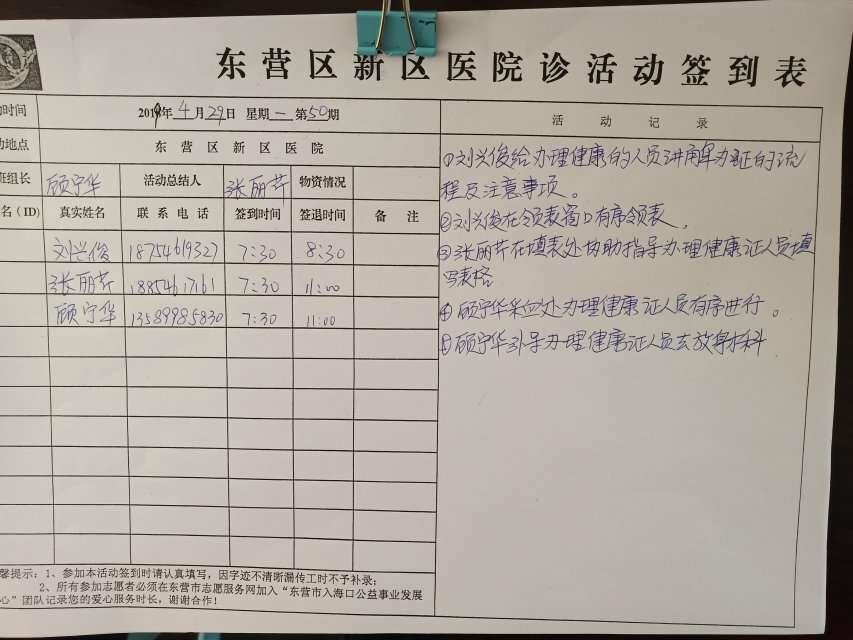 东营区新区医院诊活动签到表
动时间 2019年4月29日 星期一 第50期 活动记录
动地点 东营区新区医院
班组长 顾宁华 活动总结人 张丽芹 物资情况
名(ID) 真实姓名 联系电话 签到时间 签退时间 备注
刘兴俊 18754619327 7:30 8:30
张丽芹 18854617161 7:30 11:00
顾宁华 13589985830 7:30 11:00
①刘兴俊给办理健康的人员讲解办证的流
程及注意事项。
②刘兴俊在领表窗口有序领表,
③张丽芹在填表处协助指导办理健康证人员填
写表格
④顾宁华采血处办理健康证人员有序进行。
⑤顾宁华引导办理健康证人员去放射拍科
馨提示:1、参加本活动签到时请认真填写,因字迹不清晰漏传工时不予补录;
2、所有参加志愿者必须在东营市志愿服务网加入“东营市入海口公益事业发展
心”团队记录您的爱心服务时长,谢谢合作!